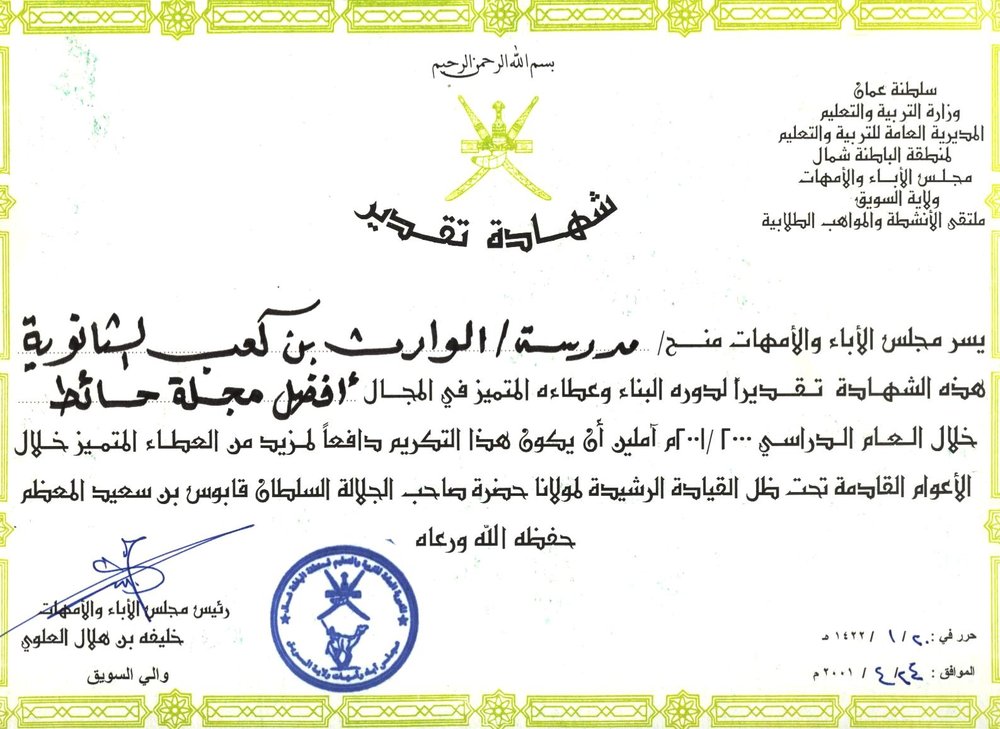 بسم الله الرحمن الرحيم
سلطنة عمان
وزارة التربية والتعليم
المديرية العامة للتربية والتعليم
لمنطقة الباطنة شمال
مجلس الأباء والأمهات
ولاية السويق
ملتقى الأنشطة والمواهب الطلابية
شهادة تقدير
يسر مجلس الأباء والأمهات منح/ مدرسة / الوارث بن كعب الثانوية
هذه الشهادة تقديراً لدوره البناء وعطاءه المتميز في المجال أفضل مجلة حائط
خلال العام الدراسي ٢٠٠٠/٢٠٠١م آملين أن يكون هذا التكريم دافعاً لمزيد من العطاء المتميز خلال
الأعوام القادمة تحت ظل القيادة الرشيدة لمولانا حضرة صاحب الجلالة السلطان قابوس بن سعيد المعظم
حفظه الله ورعاه
رئيس مجلس الأباء والأمهات
خليفه بن هلال العلوي
والي السويق
المديرية العامة للتربية والتعليم لمنطقة الباطنة شمال
مجلس آباء وأمهات ولاية السويق
حرر في : ٢٠ / ١ / ١٤٢٢ هـ
الموافق : / ٤ / ٢٠٠١ م